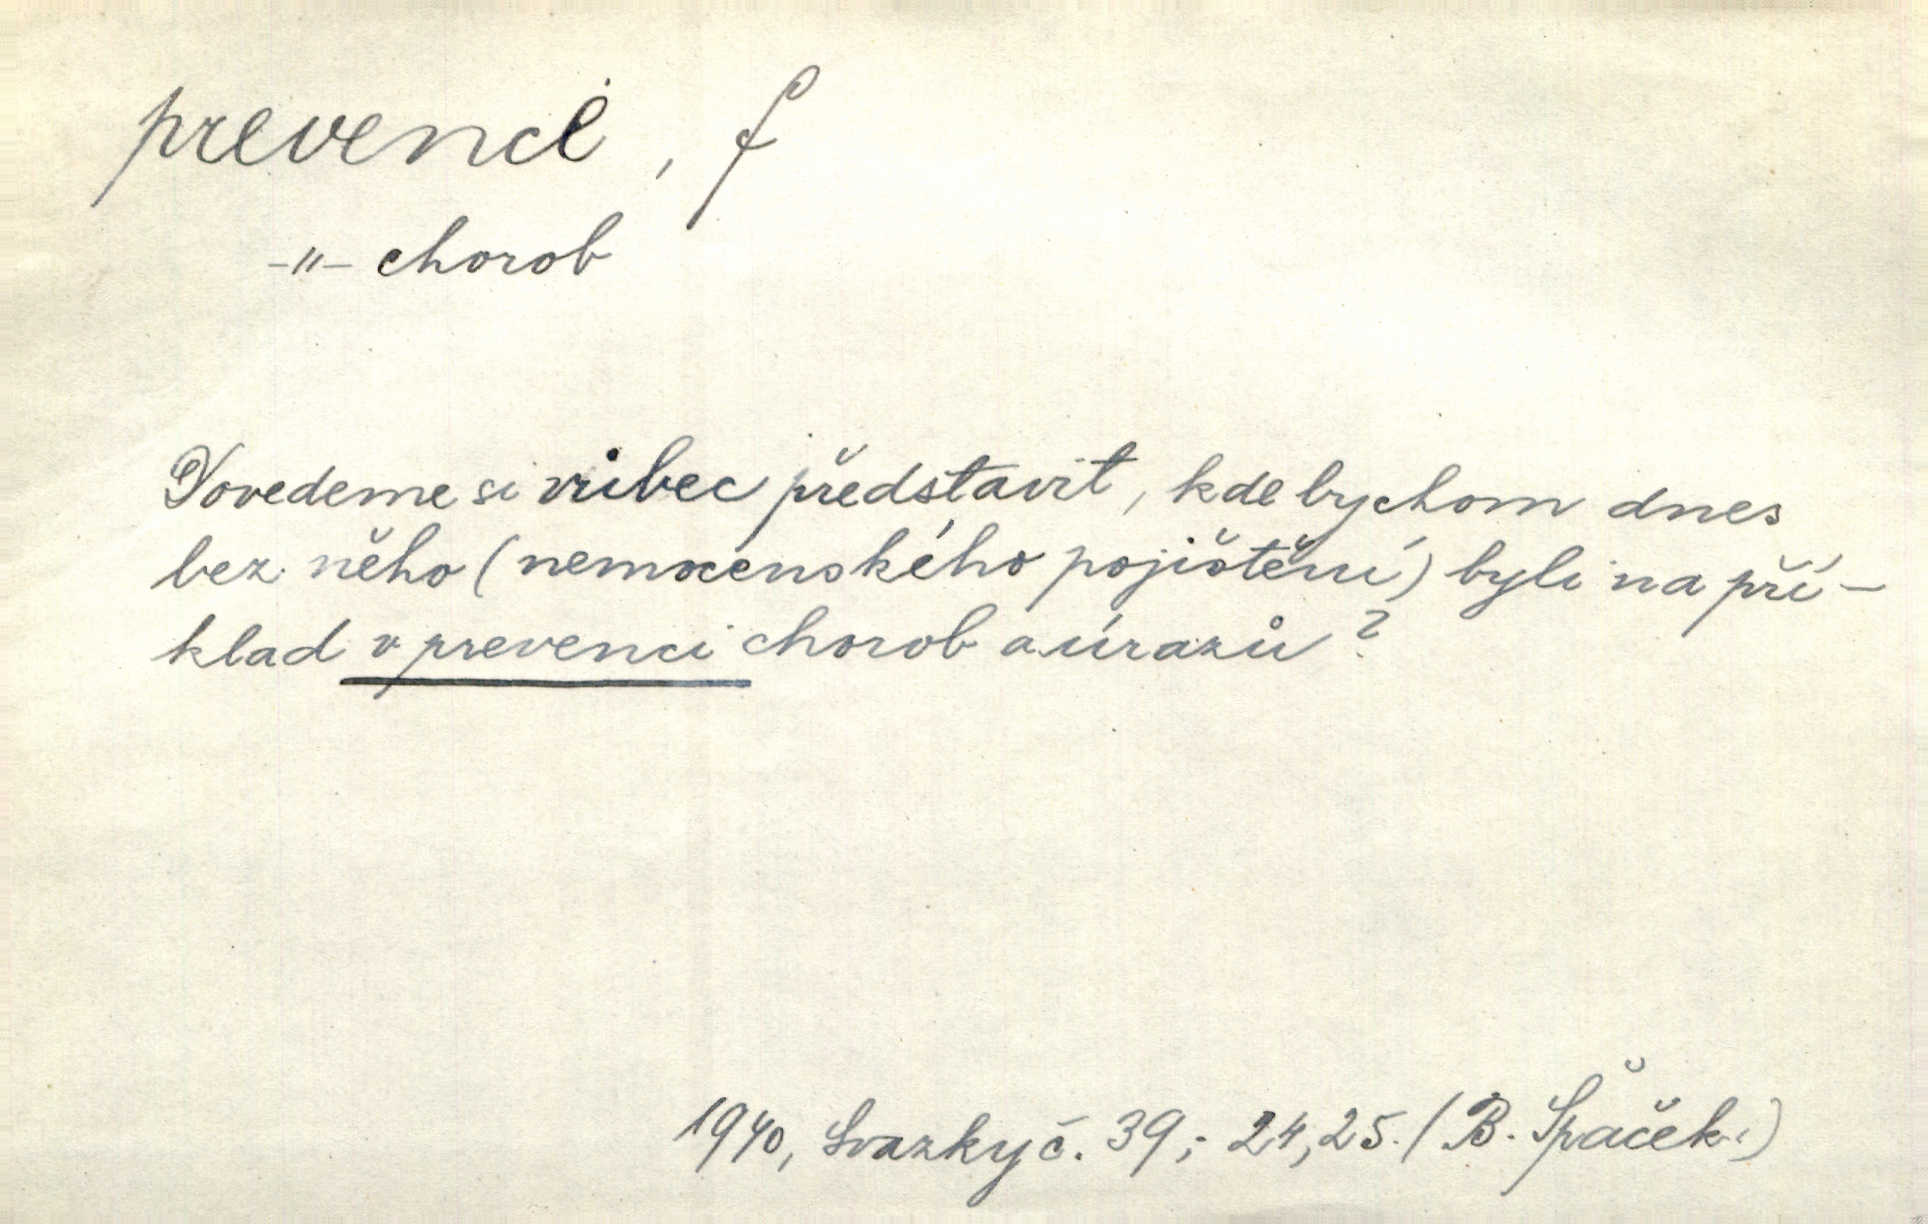 prevence, f
-"- chorob
Dovedeme si vůbec představit, kde bychom dnes
bez něho (nemocenského pojištění) byli na pří-
klad v prevenci chorob a úrazů?
1940, Svazky č. 39; 24,25. (B. Špaček.)